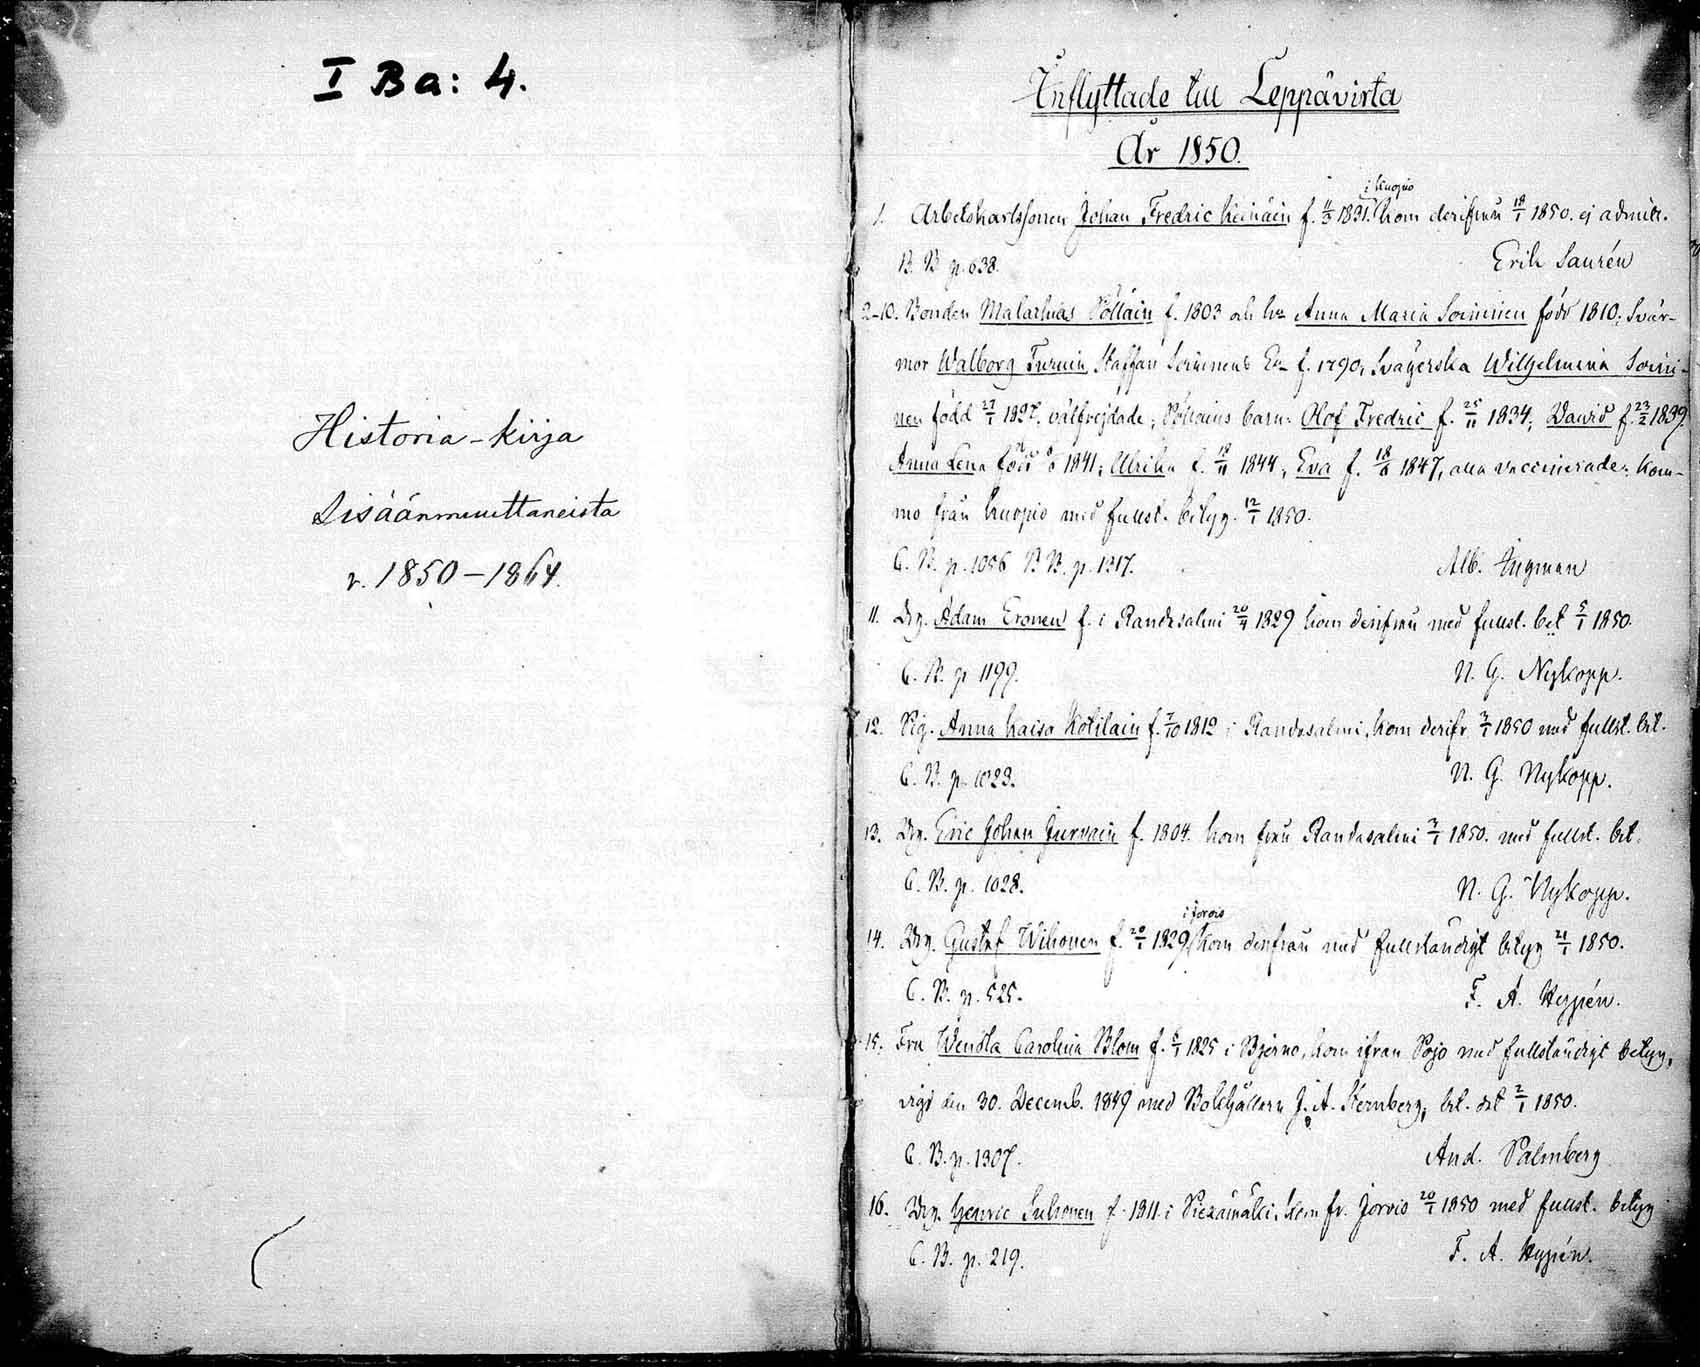 I Ba: 4.
Historia-kirja
Sisäänmuuttaneista
v. 1850-1864.
Inflyttade till Leppävirta
År 1850.
i Kuopio
1. Arbetskarlssonen Johan Fredric Keinäin f. 11/3 1831. kom derifrån 18/1 1850. ej admitt.
B. B p. 638. Erik Saurén
2-10. Bonden Malakias Pölläin f. 1803 och h. Anna Maria Soininen född 1810; Svär-
mor Walborg Turuin, Staffan Soininens E. f. 1790, Svägerska Wilhelmina Soini-
nen född 27/1 1827. välfrejdade; Pölläins barn: Olof Fredric f. 25/11 1834; David f. 23/2 1839.
Anna Lena född 1841; Ulrika f. 18/11 1844, Eva f. 18/8 1847, alla vaccinerade. kom-
mo från Kuopio med fullst. betyg. 12/1 1850.
C. B. p. 1056 B B. p. 1317. Alb. Ingman
11. Drg. Adam Eronen f. i Randasalmi 20/4 1829 kom derifrån med fullst. bet 5/1 1850.
C. B. p 1199. N. G. Nykopp.
12. Pig. Anna Kaisa Kotilain f. 7/10 1812 i Randasalmi, kom derifr. 7/1 1850 med fullst. bet.
C. B. p. 1023. N. G. Nykopp.
13. Drg. Eric Johan Jurvain f. 1804. kom från Randasalmi 7/1 1850. med fullst. bet.
C. B. p. 1028. N. G. Nykopp.
i Jorois
14. Drg. Gustaf Wihonen f. 20/1 1829, kom derifrån med fullständigt betyg 21/1 1850.
C. B. p. 525. F. A. Hypén.
15. Fru Wendla Carolina Blom f. 6/1 1825 i Bjerno, kom ifrån Pojo med fullständigt betyg,
vigd den 30. Decemb. 1849 med Bokhållern J. A. Sternberg; bet. dat 2/1 1850.
C. B. p. 1307. And. Palmberg
16. Drg. Henric Suhonen f. 1811 i Piexämäki, kom fr. Jorois 20/1 1850 med fullst. betyg
C. B. p. 219. F. A. Hypén.